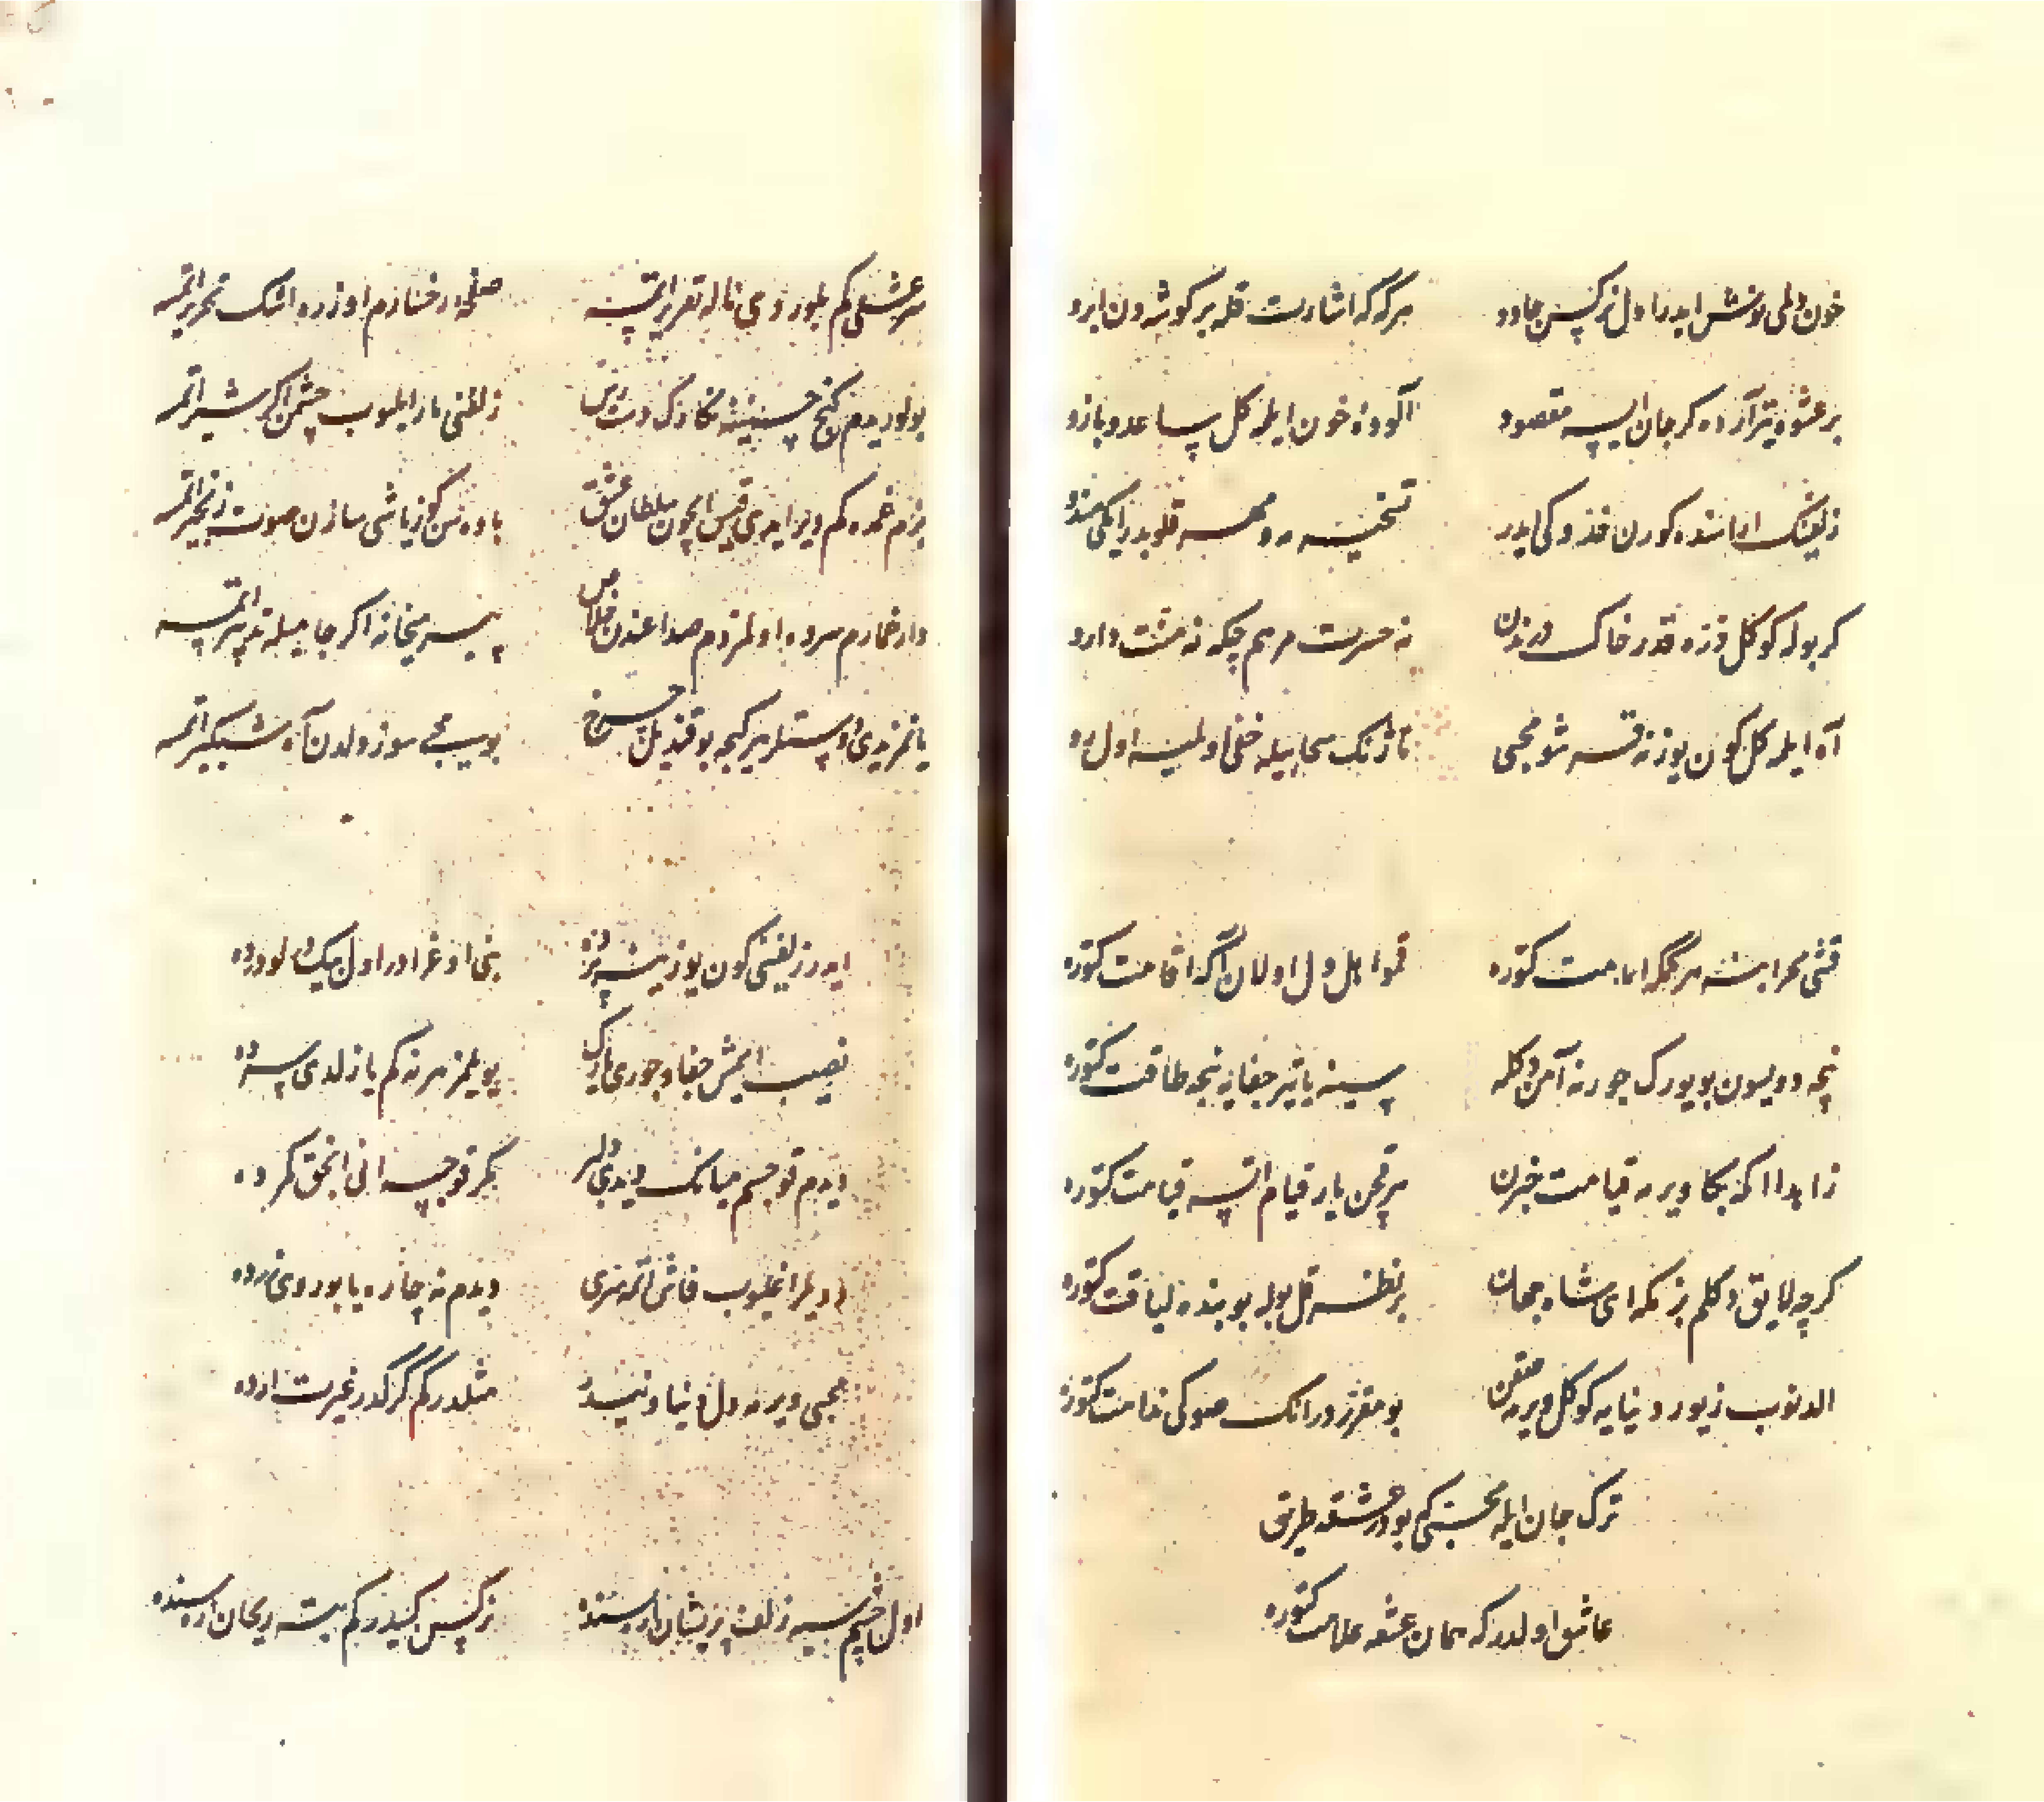 خون دلمی نوش ایدر اول نرکس جادو هرگه که اشارت قله بر کوشه دن ابرو
بر عشوه یتر آزده کر جان ایسه مقصود آلوده خون ایلمه کل ساعد و بازو
زلفنک اراسنده کورن
کر بوله کوکل ذره قدر خاک درندن نه حسرت مرهم چکه نه منت دارو
آه ایلمه کل کون یوزنه قرشو محبی نازک سحابیله خفی اولمسه اول رو
قنی محرابنه هر مکر امامت کتوره قمو اهل دل اولان اکا اقامت کتوره
نیجه دویسون بو یورک جورینه آهن دکله سینه یا تیر جفایه نیجه طاقت کتوره
زاهدا اکه بکا ویرمه قیامت خبرن هر قچن یار قیام اتسه قیامت کتوره
کرچه لایق دکلم بزمکه ای شاه جهان بر نظر قل بوله بو بنده لیاقت کتوره
الدنوب زیور دنیایه کوکل ویرمه صقن بو مقرردر انک صوکی ندامت کتوره
ترک جان ایله محبی کم بودر عشقه طریق
عاشق اولدر که همان عشقه علامت کتوره
سر عشقی کم بلوردی ناله تقریر اتمسه صفحه رخسارم اوزره اشک تحریر اتمسه
بولوردم کنج حسنینه نکارک دسترس زلفنی مار ایلیوب چشمن اکر شیر اتمسه
بزم غمده کم ویرایدی قیس ایچون سلطان عشق باده سن کوز یاشی سازن صوت زنجیر اتمسه
دار غمارم سرده اولمزدم صداعندن خلاص پیر میخانه اکر جامیله تدبیر اتمسه
یانمزیدی دوستلر هر کیجه بو قندیل چرخ بو محبی سوز دلدن آه شبکیر اتمسه
ایدر زلفنی کون یوزینه پرده بنی اوغرادر اول بیک درلو درده
نصیب ایمش جفا و جوری یارک بوزلمز هر نه کم یازلدی سرده
دیدم قوجسم میانک دیدی دلبر مکر قوچسه انی انجق کمر ده
دیلر اغلیوب فاش اتمه سری دیدم نه چاره یا بو روی زرده
محبی ویرمه دل دنیا دنیدر مثلدر کم کرکدر غیرت ارده
اول چشم سیه زلف پریشان اراسنده نرکسی کیدر کم بته ریحان اراسنده